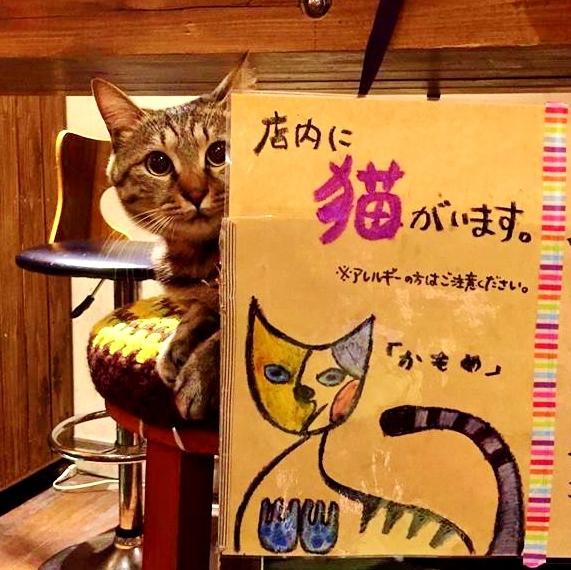 店内に
猫がいます。
※アレルギーの方はご注意ください。
「かもめ」